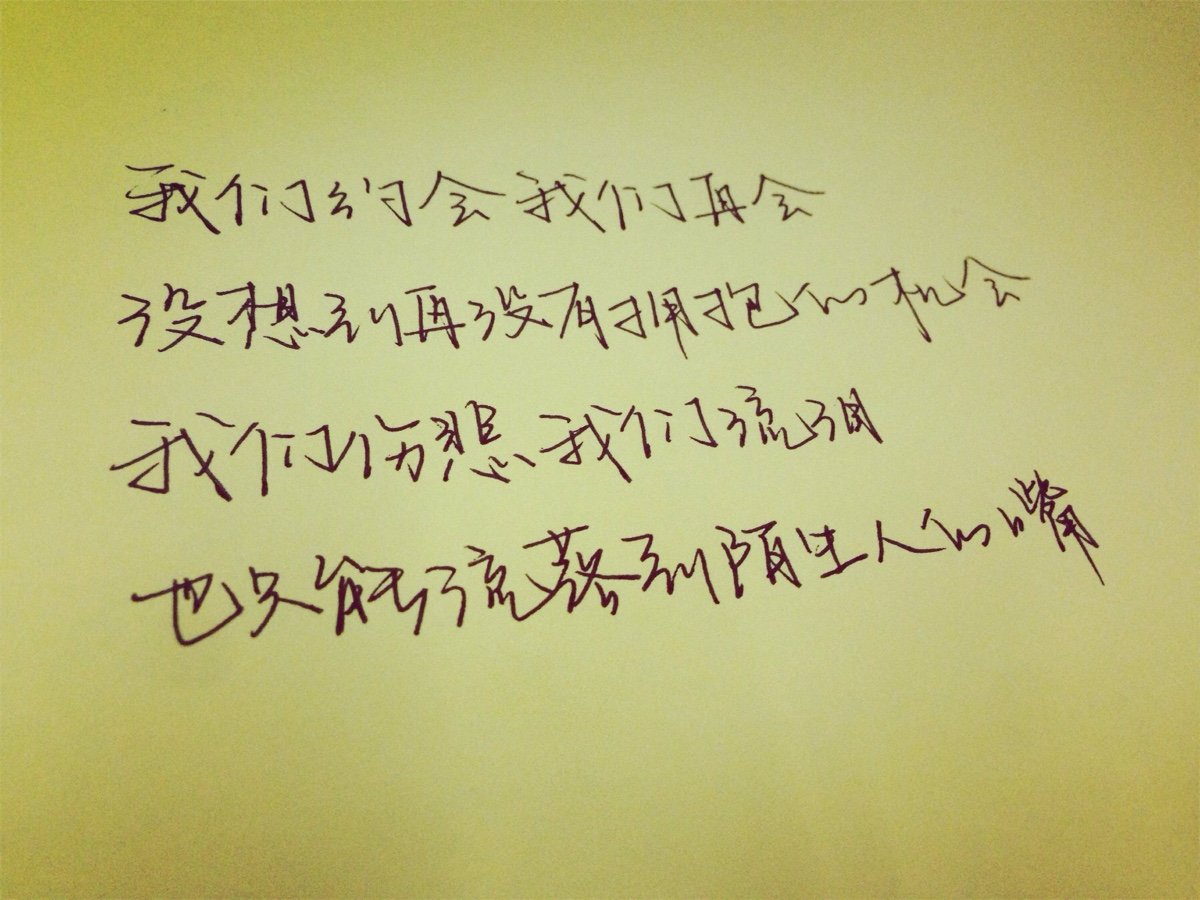 我们约会我们再会
没想到再没有拥抱的机会
我们伤悲我们流泪
也只能流落到陌生人的嘴